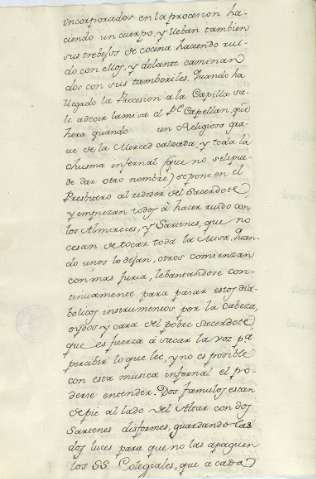 incorporados en la procesion ha-
ciendo un cuerpo, y lleban tambien
sus trebejos de cocina haciendo rui-
do con ellos, y delante caminan
dos con sus tamboriles. Quando ha
llegado la Procesion a la Capilla sa-
le a decir la misa el Pe. Capellan, que
hera quando un Religioso gra-
ve de la Merced calzada, y toda la
chusma infernal (que no se le pue-
de dar otro nombre) se pone en el
Presbiterio al rededor del Sacerdote
y empiezan todos à hacer ruido con
los Almireces, y Sartenes, que no
cesan de tocar toda la Misa, quan-
do unos lo dejan, otros comienzan
con mas furia, lebantandose con-
tinuamente para pasar estos dia-
bolicos instrumentos por la cabeza,
oydos y cara del pobre Sacerdote
que es fuerza à sacar la voz pa.
percibir lo que lee, y no es posible
con esta musica infernal el po-
derse entender. Dos famulos estan
de pie al lado del Altar con dos
Sartenes disformes, guardando las
dos luces para que no las apaguen
los SS. Colegiales, que à cada